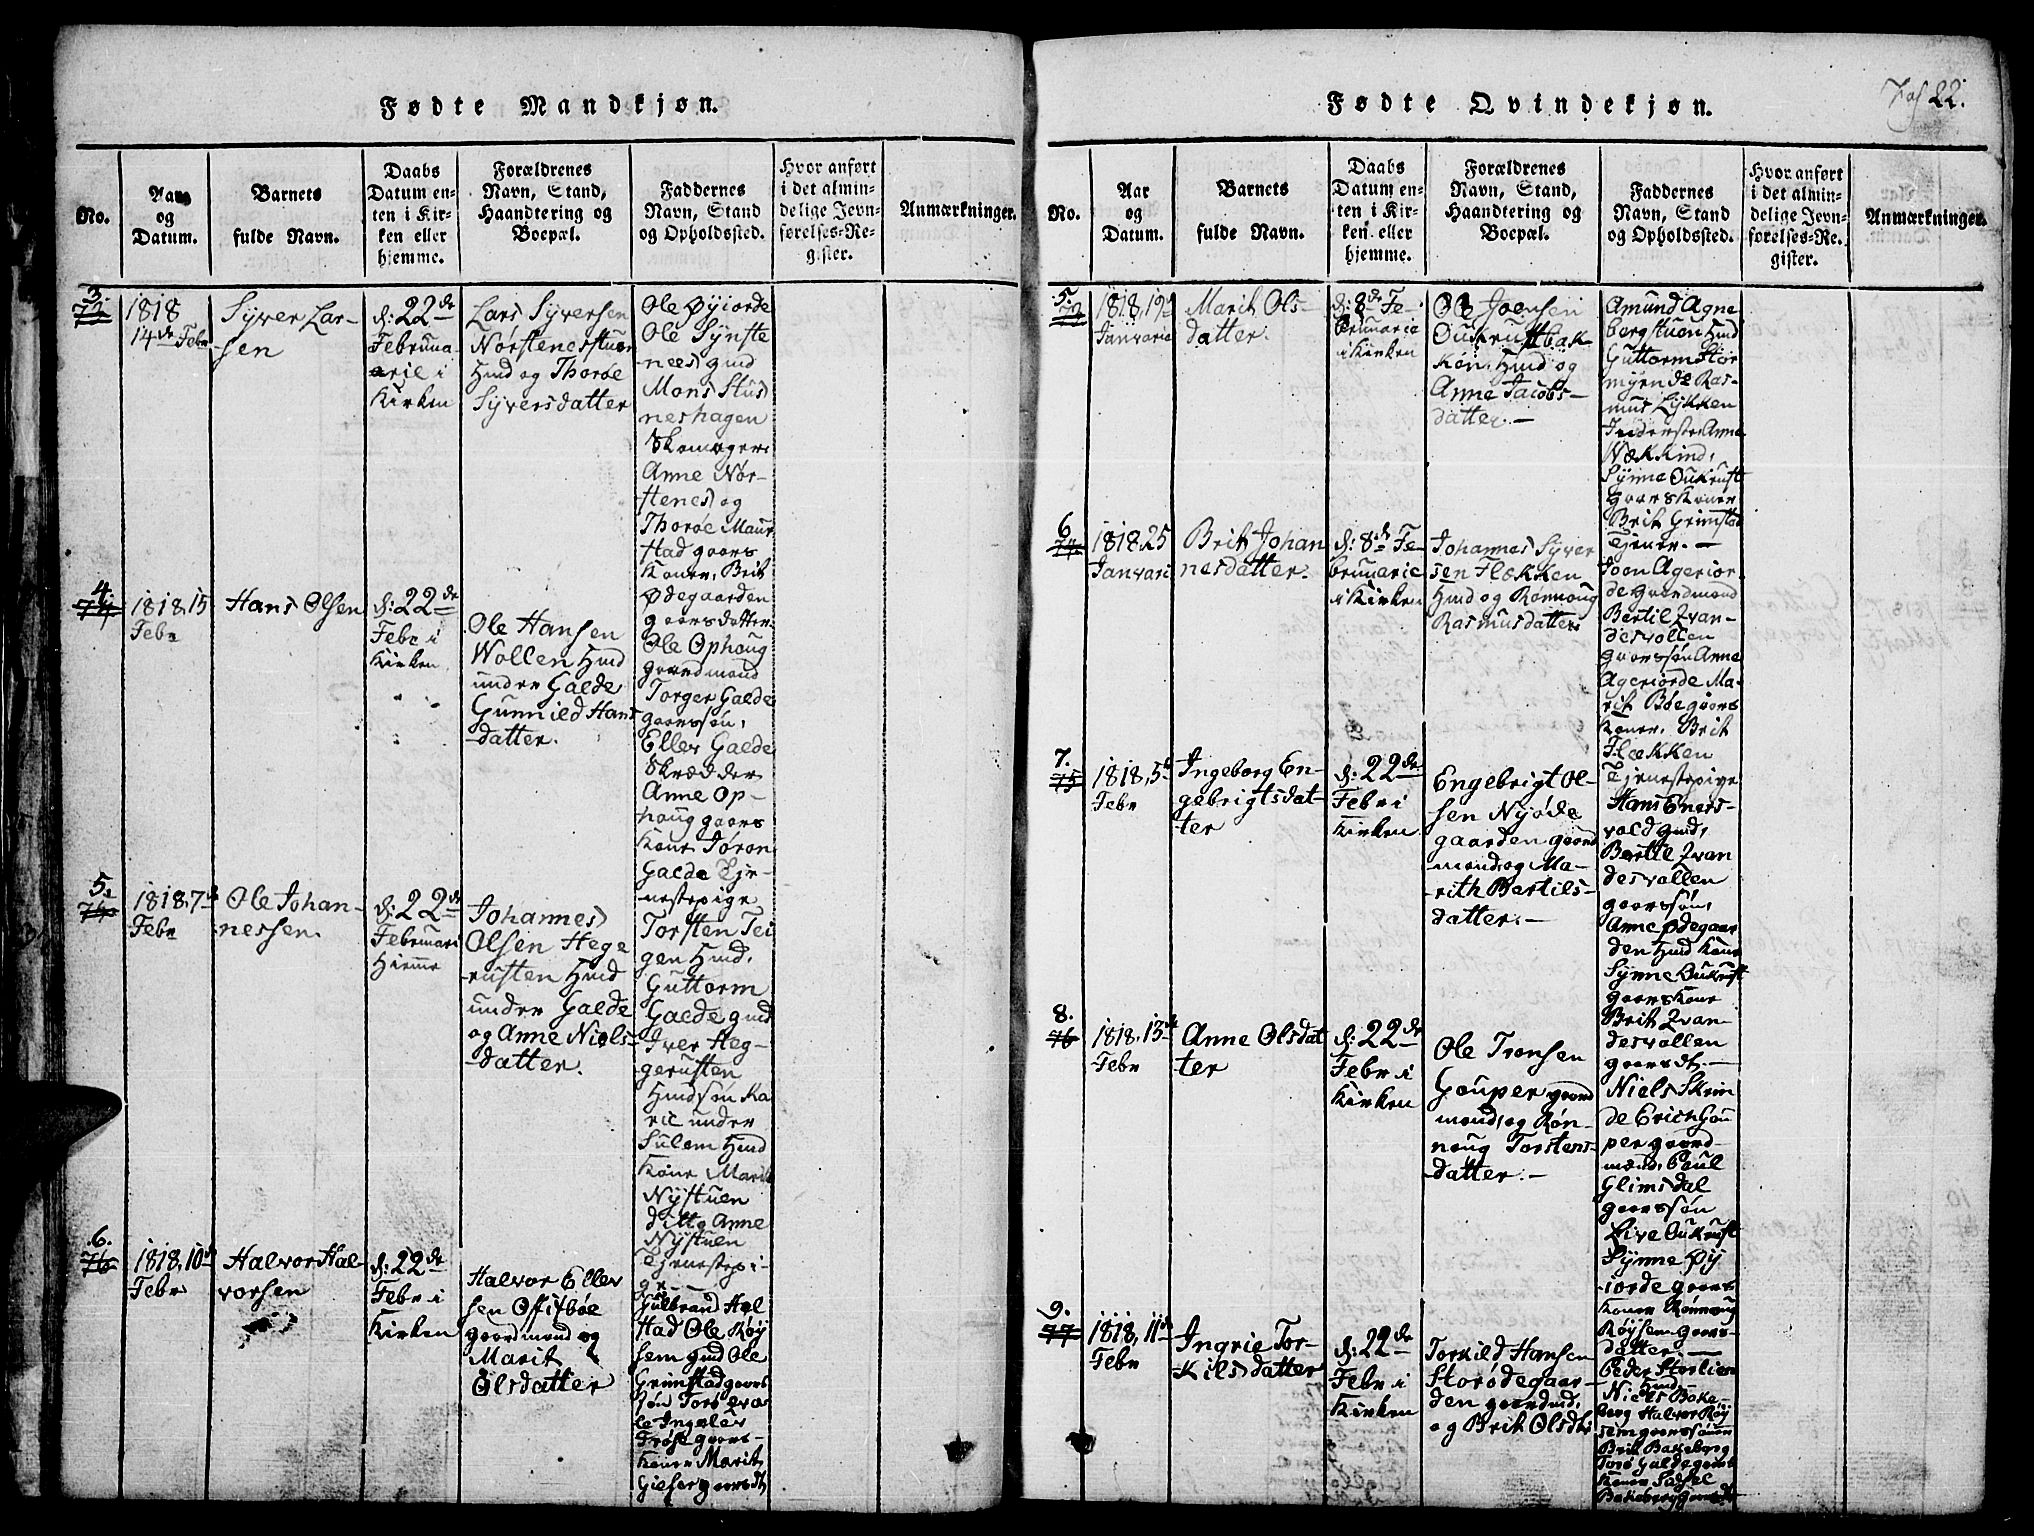 Fol 22.
Fødte Mandkjøn.
No.
Aar og Datum.
Barnets fulde Navn.
Daabs Datum enten i Kirken eller hjemme.
Forældrenes Navn, Stand, Haandtering og Boepæl.
Faddernes Navn, Stand og Opholdssted.
Hvor anført i det almindelige Jevnførelses-Register.
Anmærkninger.
3.
73.
1818
14de Febr
Syver Lar-
sen
d: 22de
Februa-
arii i
Kirken
Lars Syversen
Nørstenesstuen
Hmd og Thoroe
Syversdatter
Ole Øyiorde
Ole Synste
nes gmd
Mons Stus
neshagen
Skomager
Anne Nør-
stenes og
Thorøe Maur
stad gaars
Koner, Brit
Ødegaarden
gaarsdatter
4.
74
1818, 15
Febr
Hans Olsen
d: 22de
Febr i
Kirken
Ole Hansen
Wollen Hmd
under Galde
Gunnild Hans
datter.
Ole Ophoug
gaardmand
Torger Galde
gaarssøn,
Eller Galde
Skrædder
Anne Op-
houg gaars
Kone Jøron
Galde Tje-
nestepige
5.
75
1818, 7de
Febr
Ole Johan-
nessen.
d: 22de
Februari
Hieme
Johannes
Olsen Hege
rusten Hmd
under Galde
og Anne Niels-
datter.
Torsten Tei
gen Hmd,
Guttorm
Galde gmd
Iver Heg-
gerusten
Hmdsøn Ka
ri under
Sulem Hmd
Kone Marit
Nystuen
ditto Anne
Nystuen
Tjenestepi-
ge
6.
76
1818, 10de
Febr
Halvor Hal-
vorsen
d: 22de
Febr i
Kirken
Halvor Eller
sen Offigboe
gaardmand og
Marit
Olsdatter
Gulbrand Hal
stad Ole Røy
sem gmd Ole
Grimstad gaars
søn Torø Qva
le Ingebor
Frøse gaars-
Koner Marit
gaarsdt,
Fødte Qvindekjøn.
No.
Aar og Datum.
Barnets fulde Navn.
Daabs Datum enten i Kirken eller hjemme.
Forældrenes Navn, Stand, Haandtering og Boepæl.
Faddernes Navn, Stand og Opholdssted.
Hvor anført i det almindelige Jevnførelses-Re-gister.
Anmærkninger
5.
73
1818, 19
Januarii
Marit Ols-
datter.
d: 8de Fe-
bruarie
i Kirken
Ole Joensen
Oukrustbak-
ken, Hmd og
Anne Jacobs-
datter.-
Amund Agne
bergstuen Hmd
Guttorm Stor
myren do Ras-
mus Løkken
Inderste Anne
Nækkind,
Synne Oukrust
gaars Koner
Brit Grimstad
Tjener.-
6
74
1818, 25
Januari
Brit Johan
nesdatter.
d: 8de Fe
bruarie
i Kirken
Johannes Syver
sen Flækken
Hmd og Rønnoug
Rasmusdatter
Joon Agerior-
de gaardmand
Bertil Zvan-
desvollen
gaarssøn Anne
Ageriorde Ma-
rit Bøe gaars
Koner, Brit
Flækken
Tjenestepige
7.
75
1818, 5te
Febr
Ingeborg En-
gebrigtsdat-
ter
d: 22de
Febr i
Kirken
Engebrigt Ol-
sen Nyøde
gaarden gaard
mand og Ma-
rith Bertils-
datter.-
Hans Eners-
vold gmd,
Bertil Zvan
desvollen
gaarssøn,
Anne Ødegaar
den Hmd Kone
Synne Oukrust
gaars Kone
Brit Zvan
desvollen
gaarsdt.-
8.
76
1818, 13de
Febr
Anne Olsdat
ter
d: 22de
Febr i
Kirken
Ole Tronsen
Gouper gaard
mand, og Røn-
noug Torstens-
datter.-
Niels Skrin
de Erich Gou
per gaard-
mænd, Poul
Glimsdal
gaarssøn
Live Oukrust
Synne Øy
iorde gaars
Koner Rønnoug
Røysem gaars-
datter.-
9.
77
1818, 11te
Febr
Ingrie Tor-
kilsdatter
d: 22de
Febr i
Kirken
Torkild Hansen
Storødegaar-
den gaardmd,
og Brit Olsdt.
Peder Storlien
Hmd
Niels Bake-
berg Halvor Røy
sem gaarssøner
Brit Bakeberg
Torø Galde gaars
Koner
Bakeberg gaarsdt